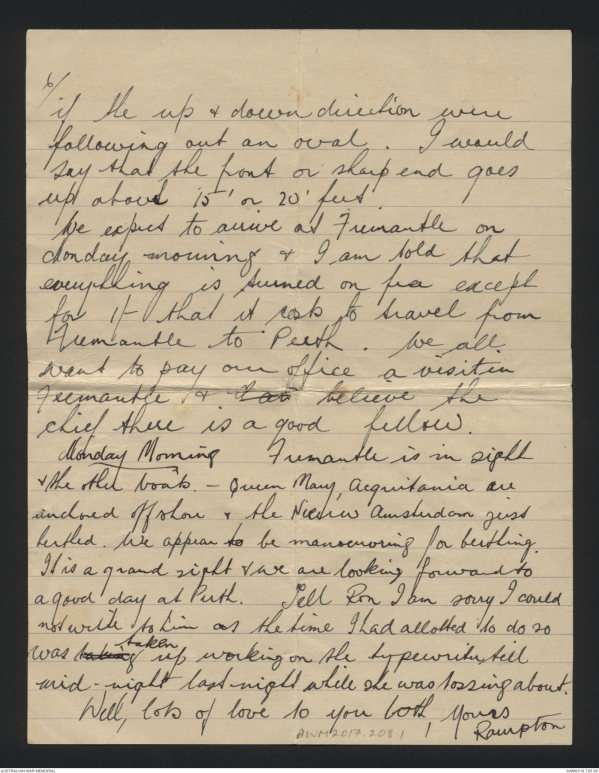 6/
if the up & down direction were
following out an oval. I would
say that the front or sharp end goes
up about 15' or 20' feet.
We expect to arrive at Fremantle on
Monday morning & I am told that
everything is turned on free except
for 1/- that it costs to travel from
Fremantle to Perth. We all
want to pay our office a visit in
Fremantle & believe the
chief there is a good fellow.
Monday Morning Fremantle is in sight
& the other boats. - Queen Mary, Acquitania are
anchored offshore & the Nieuw Amsterdam just
berthed. We appear to be manoeuvring for berthing.
It is a grand sight & we are looking forward to
a good day at Perth. Tell Ron I am sorry I could
not write to him as the time I had allotted to do so
was taking taken up working on the typewriter till
mid-night last night while she was tossing about.
Well, lots of love to you both, Yours
Rampton
AWM2017.208.1
AUSTRALIAN WAR MEMORIAL